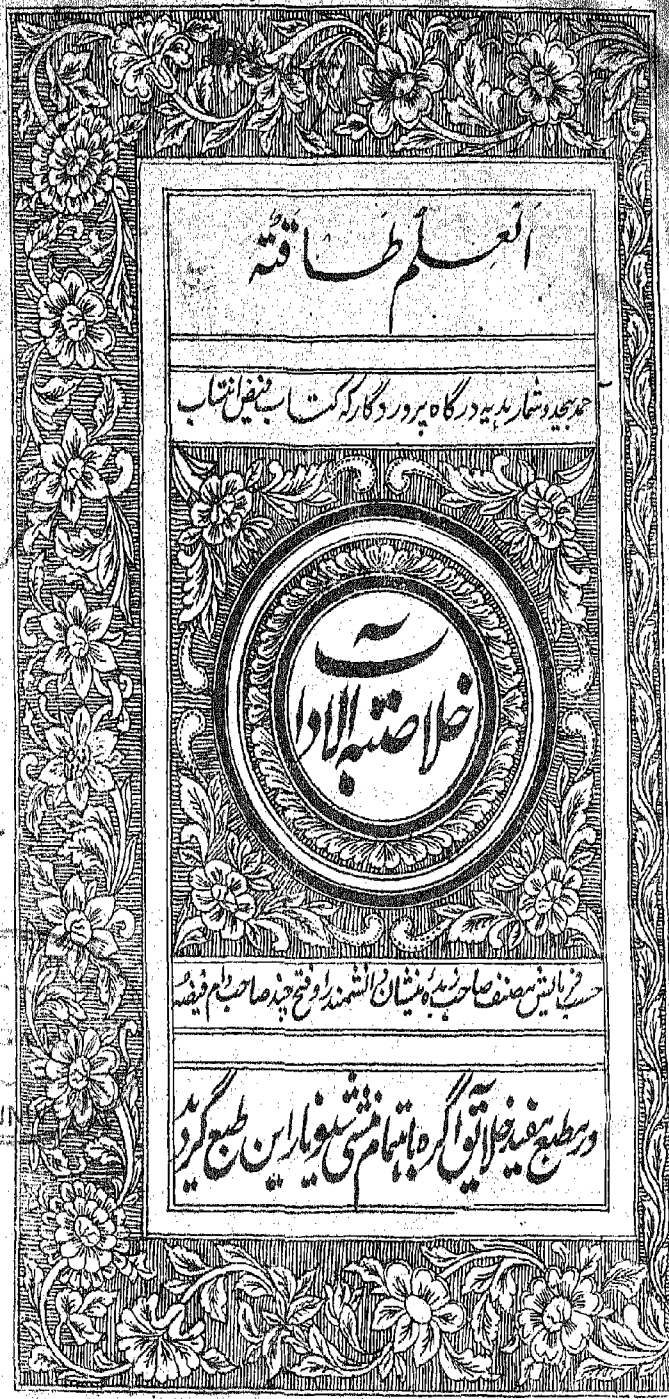 العلم طاقتہ
حمد بیحد و شمار بدیہ درگاہ پروردگار کہ کتاب فیض انتساب
خلاصتہ الاداب
حسب فرمایش مصنف صاحب زبدہ منشیان دانشمند راو فتح چند صاحب دام فیضہ
در مطبع مفید خلایق آگرہ باہتمام منشی شیو نراین طبع گردید